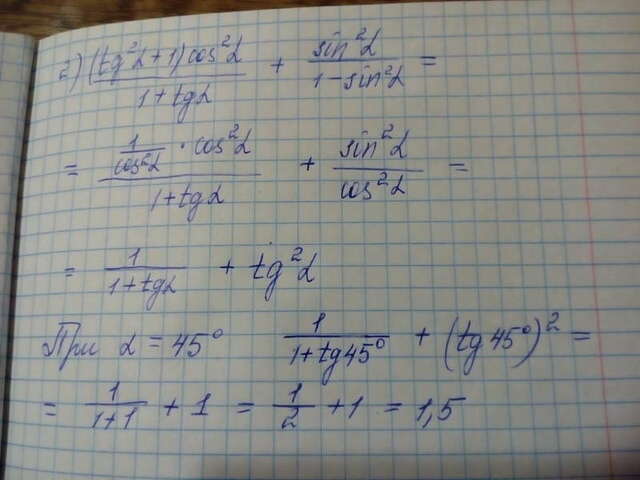 2) (tg²α+1)cos²α / 1+tgα + sin²α / 1-sin²α =
= 1/cos²α · cos²α / 1+tgα + sin²α / cos²α =
= 1 / 1+tgα + tg²α
При α = 45° 1 / 1+tg45° + (tg45°)² =
= 1 / 1+1 + 1 = 1/2 + 1 = 1,5